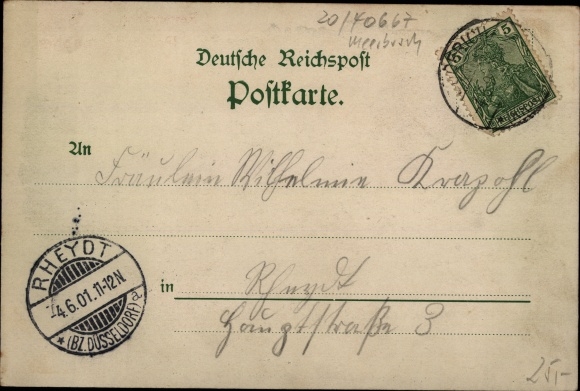 20/40667
Meerbusch
Deutsche Reichspost
Postkarte.
5
REICHSPOST
An
Fräulein Wilhelmine Krapohl
RHEYDT
4.6.01.11-12N.
*(BZ.DÜSSELDORF)
in
Rheydt
Hauptstraße 3
25,-